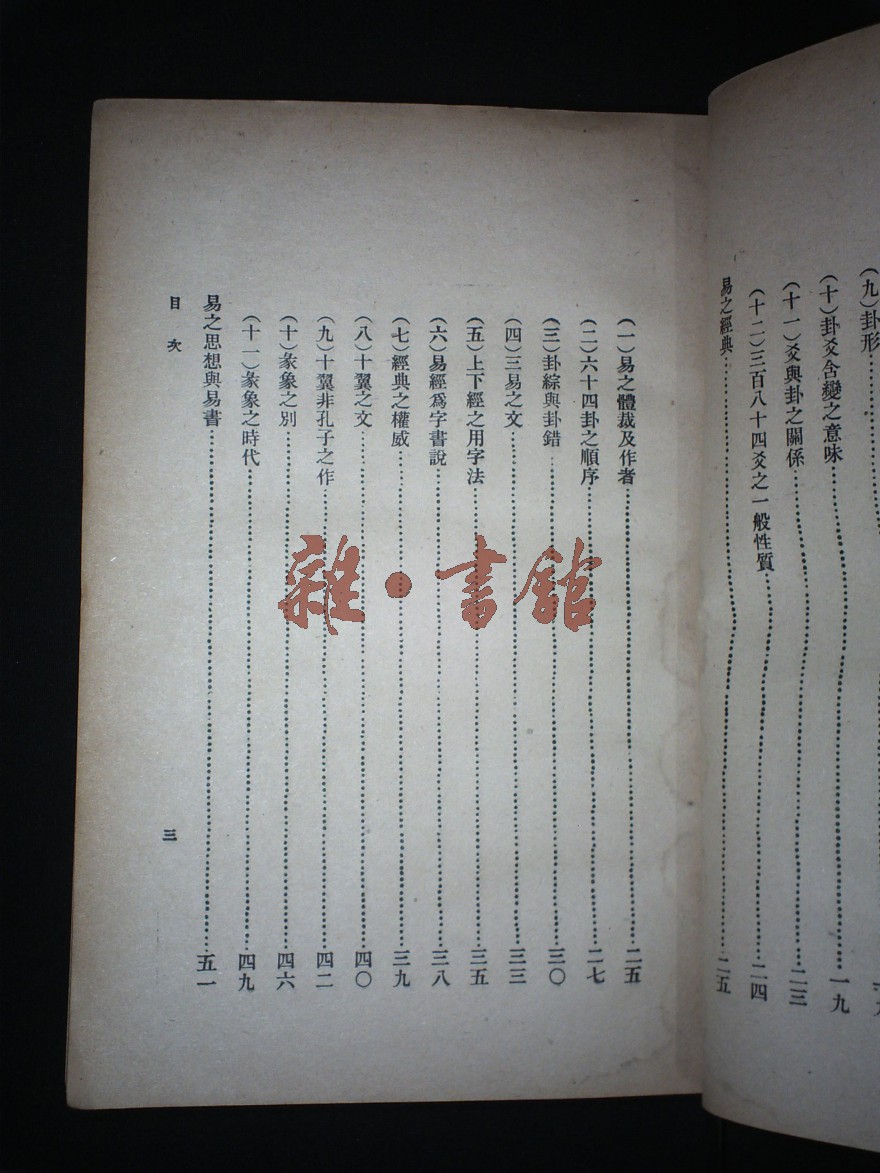 (九)卦形
(十)卦爻含變之意味……一九
(十一)爻與卦之關係……二三
(十二)三百八十四爻之一般性質……二四
易之經典……二五
(一)易之體裁及作者……二五
(二)六十四卦之順序……二七
(三)卦綜與卦錯……三〇
(四)三易之文……三三
(五)上下經之用字法……三五
(六)易經爲字書說……三八
(七)經典之權威……三九
(八)十翼之文……四〇
(九)十翼非孔子之作……四二
(十)彖象之別……四六
(十一)彖象之時代……四九
易之思想與易書……五一
目次
三
雜·書館